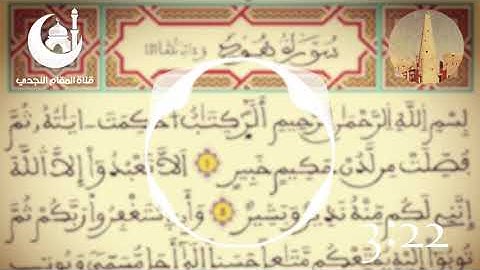 سُورَةُ هُودٍ
قناة المقام النجدي
بِسْمِ اللَّهِ الرَّحْمَٰنِ الرَّحِيمِ أَلَٓرَ كِتَابٌ احْكِمَتَ ايَاتُهُ ثُمَّ
فُصِّلَتْ مِن لَّدُنْ حَكِيمٍ خَبِيرٍ أَلَّا تَعْبُدُوٓا إِلَّا اللَّهَ
إِنَّنِي لَكُم مِّنْهُ نَذِيرٌ وَبَشِيرٌ وَأَنِ اسْتَغْفِرُوا رَبَّكُمْ ثُمَّ
تُوبُوٓا إِلَيْهِ يُمَتِّعْكُم مَّتَاعاً حَسَناً إِلَىٰٓ أَجَلٍ مُّسَمّىً وَيُوتِ
3:22